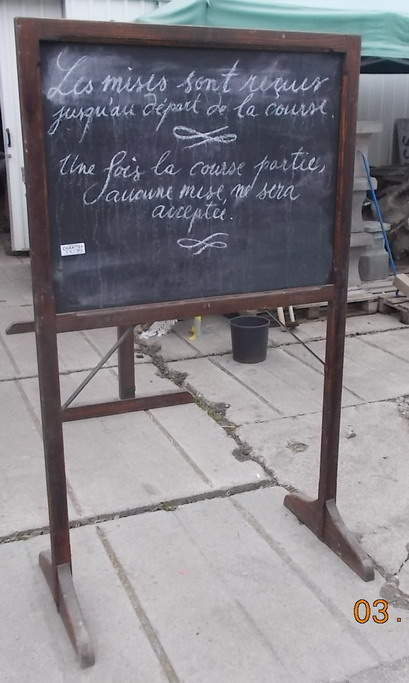 Les mises sont reçues
jusqu'au départ de la course.
Une fois la course partie,
aucune mise, ne sera
acceptée.
03.